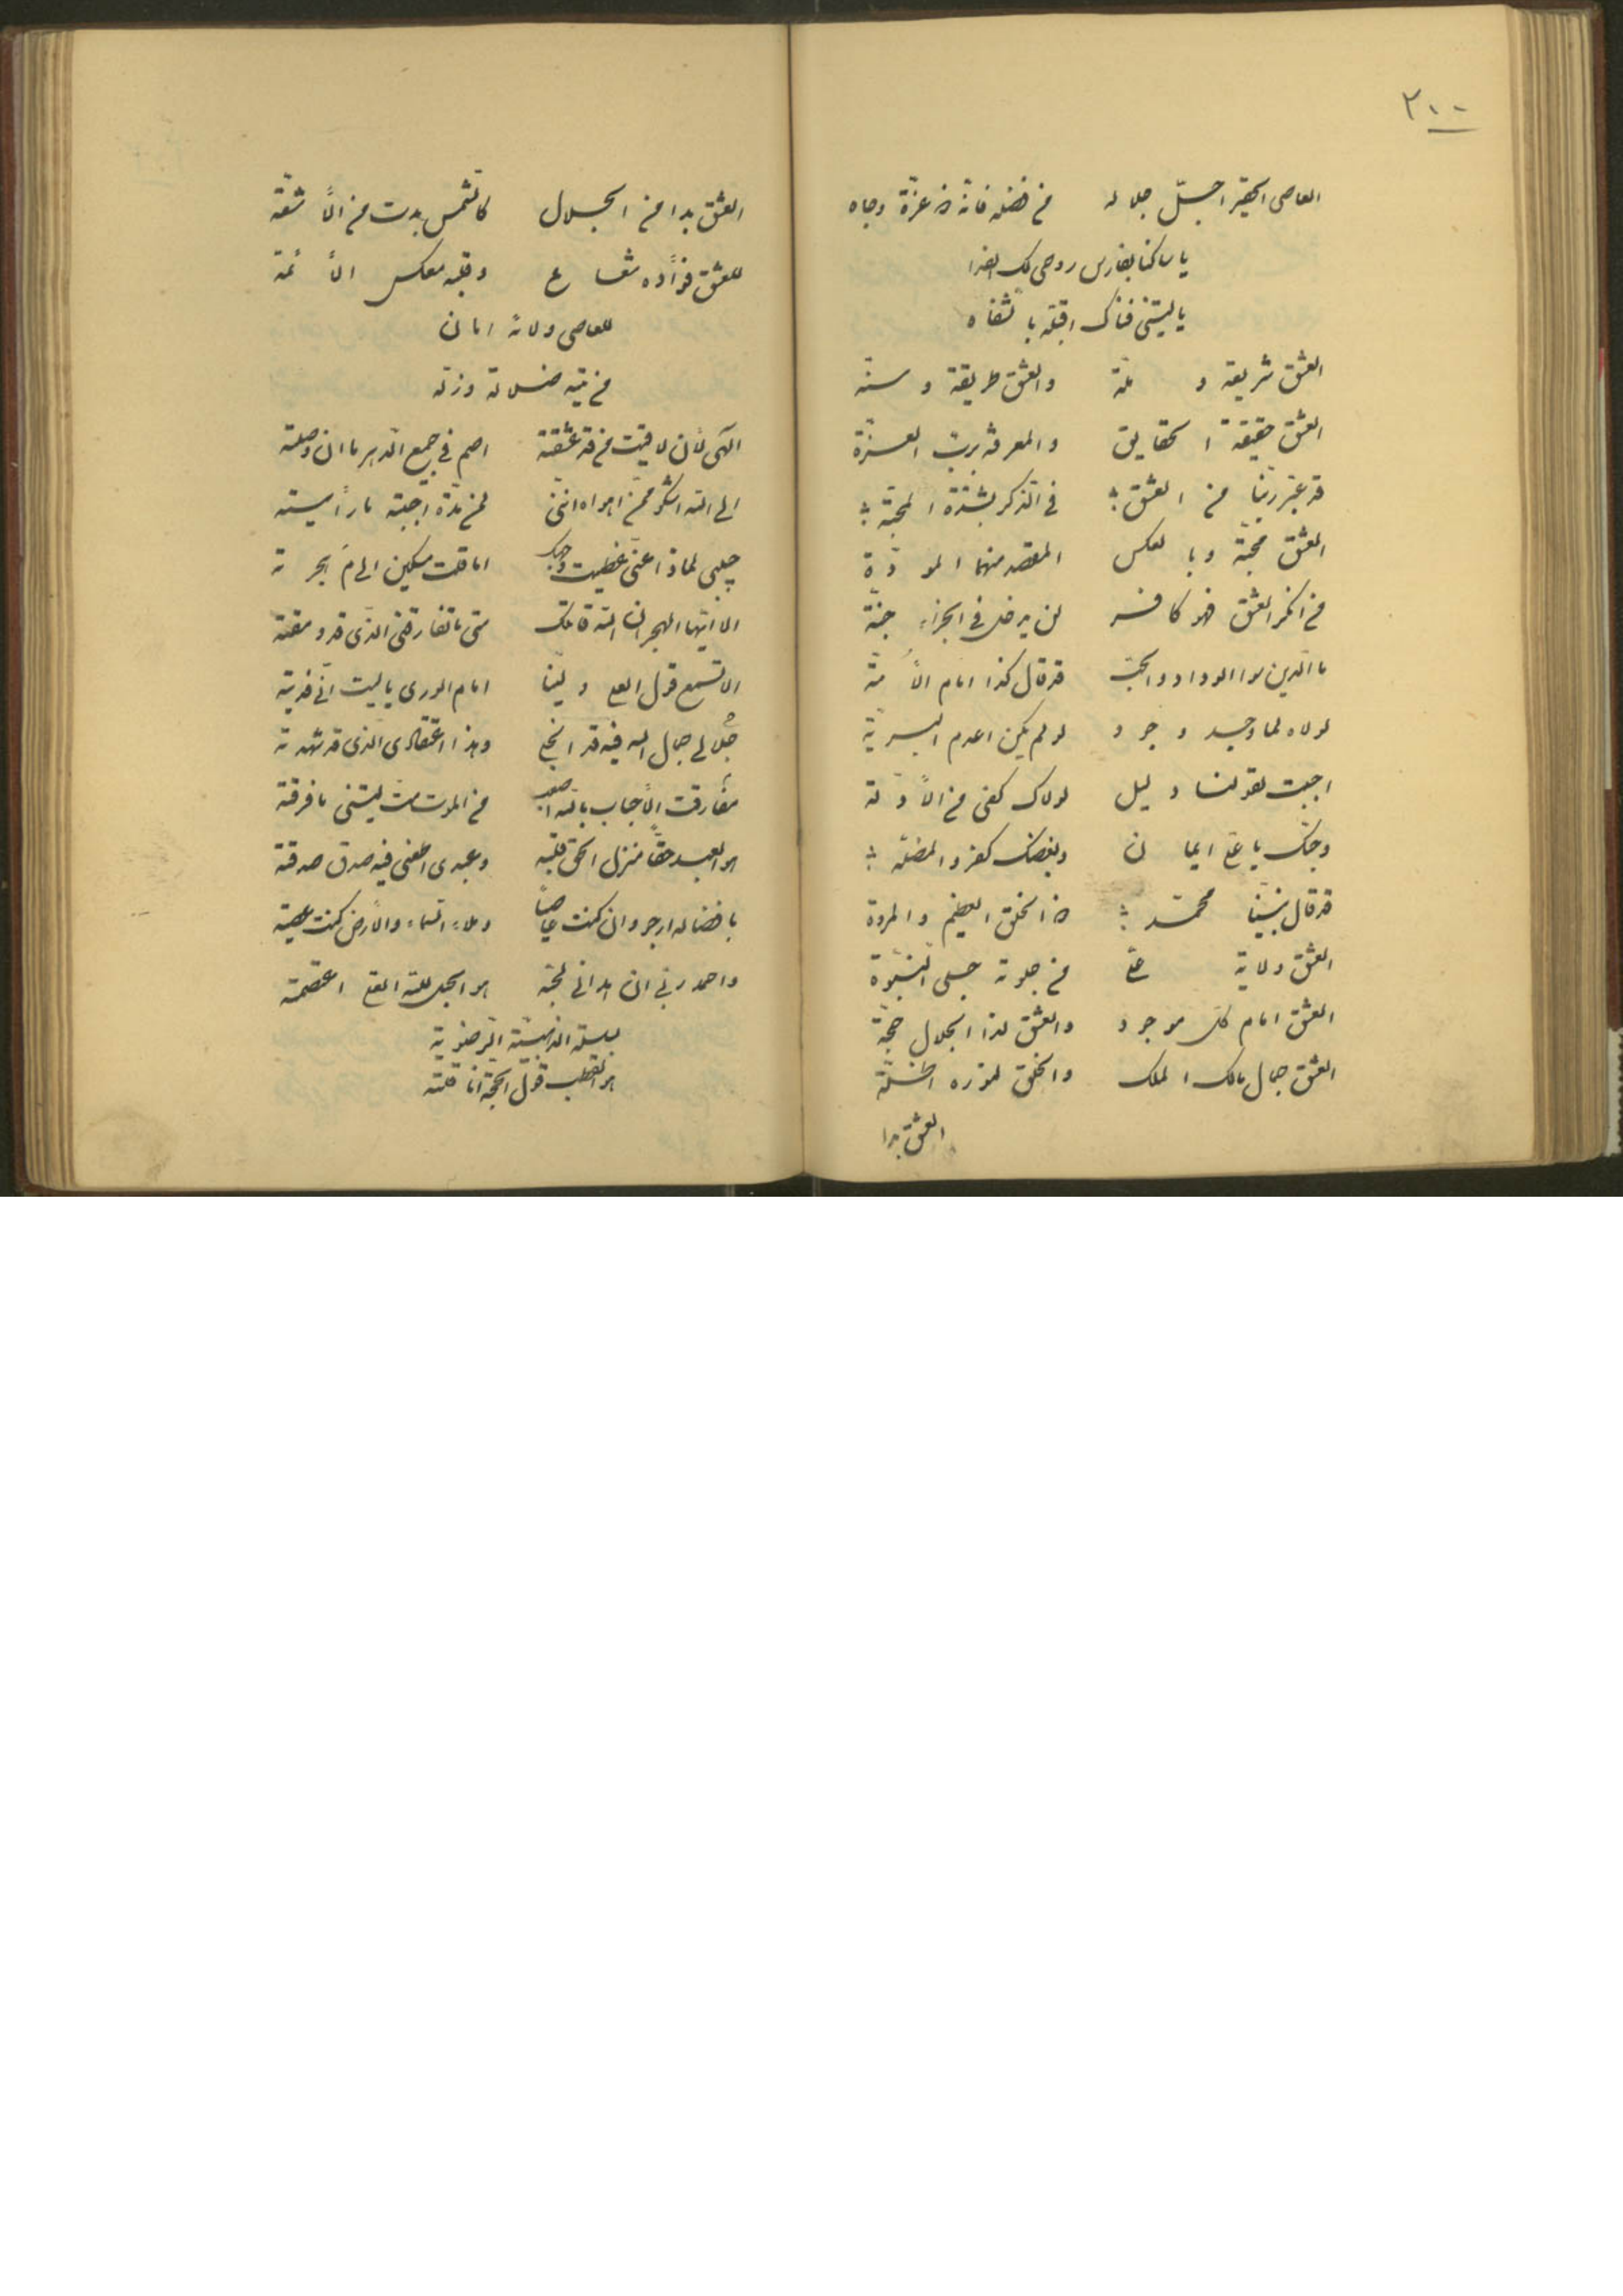 ٢٠٠
العاصی الحقیر اجلّ جلاله من فضله فانه عزة وجاه
یا ساکنا بفارس روحی لک الفدا
یا لیتنی فناک اقبّله بالشفاه
العشق شریعة و ملة والعشق طریقة و سنة
العشق حقیقة الحقایق والمعرفة بربّ العزّة
قد عبّر ربّنا من العشق فی الذکر بشدّة المحبّة
العشق محبّة وبالعکس المقصد منهما المودّة
من انکر العشق فهو کافر لن یدخل فی الجزاء جنّة
ما الدّین سوا الوداد والحبّ قد قال کذا امام الأمّة
لولاه لما وجد وجود لو لم یکن اعدم البریّة
اجبت بقولنا دلیل لولاک کفی من الأدلّة
وحبّک یا علی ایمان وبغضک کفر والمضلّة
قد قال نبیّنا محمّد الخلق العظیم والمروة
العشق ولایة علی من جلوته جلی النبوّة
العشق امام کل موجود والعشق لذا الجلال حجّة
العشق جمال مالک الملک والخلق لنوره اظلّة
العشق بدا
العشق بدا من الجلال کالشمس بدت من الأشعّة
للعشق فؤاده شعاع وقلبه معکس الأئمة
للعاصی ولاؤه امان
من تیه ضلاله وزلّه
الهی لأن لاقیت من قد عشقته اصم فی جمیع الدّهر ما ان وصلته
الی الله اشکو ممّن اهواه اننی لمن مدّة احببته ما رأیته
حبیبی لماذا عنّی غطیت وجهک اما قلت مسکین الی م هجرته
الا ایّها الهجران الله قاتلک متی ما تفارقنی الذی قد ومقته
الا تسمع قول العلی ولیّنا امام الوری یا لیت انّی فدیته
جلالی جمال الله فیه قد انجلی وهذا اعتقادی الذی قد شهدته
مفارقت الأحباب بالله اصعب من الموت متّ لیتنی ما فرقته
هو العبد حقّا منزل الحق قلبه وعبدی اعنی فیه صدق صدقته
بافضاله ارجو وان کنت عاصیًا وملاء السماء والأرض کنت عصیته
واحمد ربّی ان هدانی لحبّه هو الحبل لله العلی اعتصمته
بسلسلة الذهبیّة الرضویة
هو القطب قول الحجة انا قلته